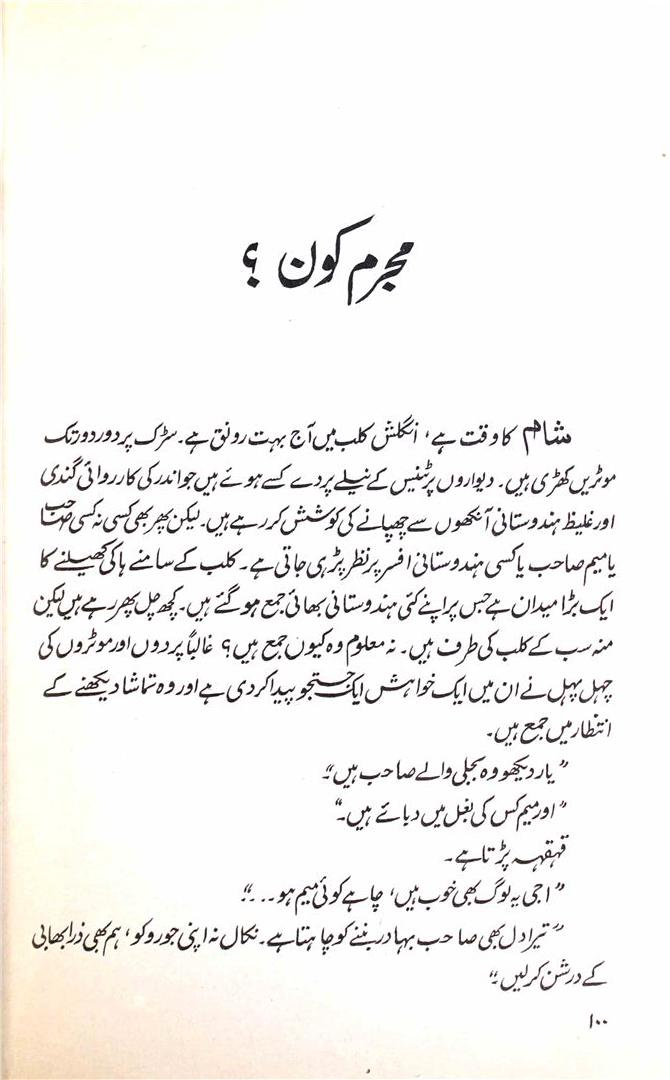 مجرم کون ؟
شام کا وقت ہے، انگلش کلب میں آج بہت رونق ہے۔ سڑک پر دور دور تک
موٹریں کھڑی ہیں۔ دیواروں پر ٹینس کے نیلے پردے کسے ہوئے ہیں جو اندر کی کارروائی گندی
اور غلیظ ہندوستانی آنکھوں سے چھپانے کی کوشش کر رہے ہیں۔ لیکن پھر بھی کسی نہ کسی صاحب
یا میم صاحب یا کسی ہندوستانی افسر پر نظر پڑ ہی جاتی ہے۔ کلب کے سامنے ہاکی کھیلنے کا
ایک بڑا میدان ہے جس پر اپنے کئی ہندوستانی بھائی جمع ہو گئے ہیں۔ کچھ چل پھر رہے ہیں لیکن
منہ سب کے کلب کی طرف ہیں۔ نہ معلوم وہ کیوں جمع ہیں؟ غالباً پردوں اور موٹروں کی
چہل پہل نے ان میں ایک خواہش ایک جستجو پیدا کر دی ہے اور وہ تماشا دیکھنے کے
انتظار میں جمع ہیں۔
"یار دیکھو وہ بجلی والے صاحب ہیں"۔
"اور میم کس کی بغل میں دبائے ہیں۔"
قہقہہ پڑتا ہے۔
"اجی یہ لوگ بھی خوب ہیں، چاہے کوئی میم ہو ۔۔۔"
"تیرا دل بھی صاحب بہادر بننے کو چاہتا ہے۔ نکال نہ اپنی جورو کو، ہم بھی ذرا بھابی
کے درشن کر لیں۔"
۱۰۰